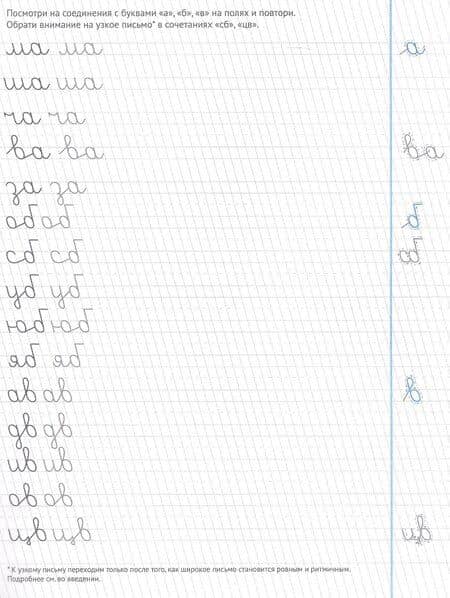 Посмотри на соединения с буквами «а», «б», «в» на полях и повтори.
Обрати внимание на узкое письмо* в сочетаниях «сб», «цв».
ма ма а
ша ша
ча ча
ва ва ва
за за
об об б
сб сб сб
уб уб
юб юб
яб яб
ав ав в
дв дв
ив ив
ов ов
цв цв цв
* К узкому письму переходим только после того, как широкое письмо становится ровным и ритмичным.
Подробнее см. во введении.